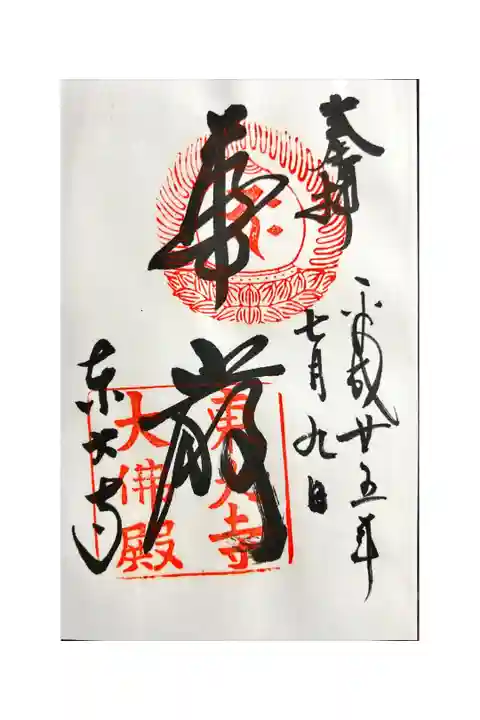 奉拝
平成廿五年
七月九日
華厳
東大寺
大佛殿
東大寺